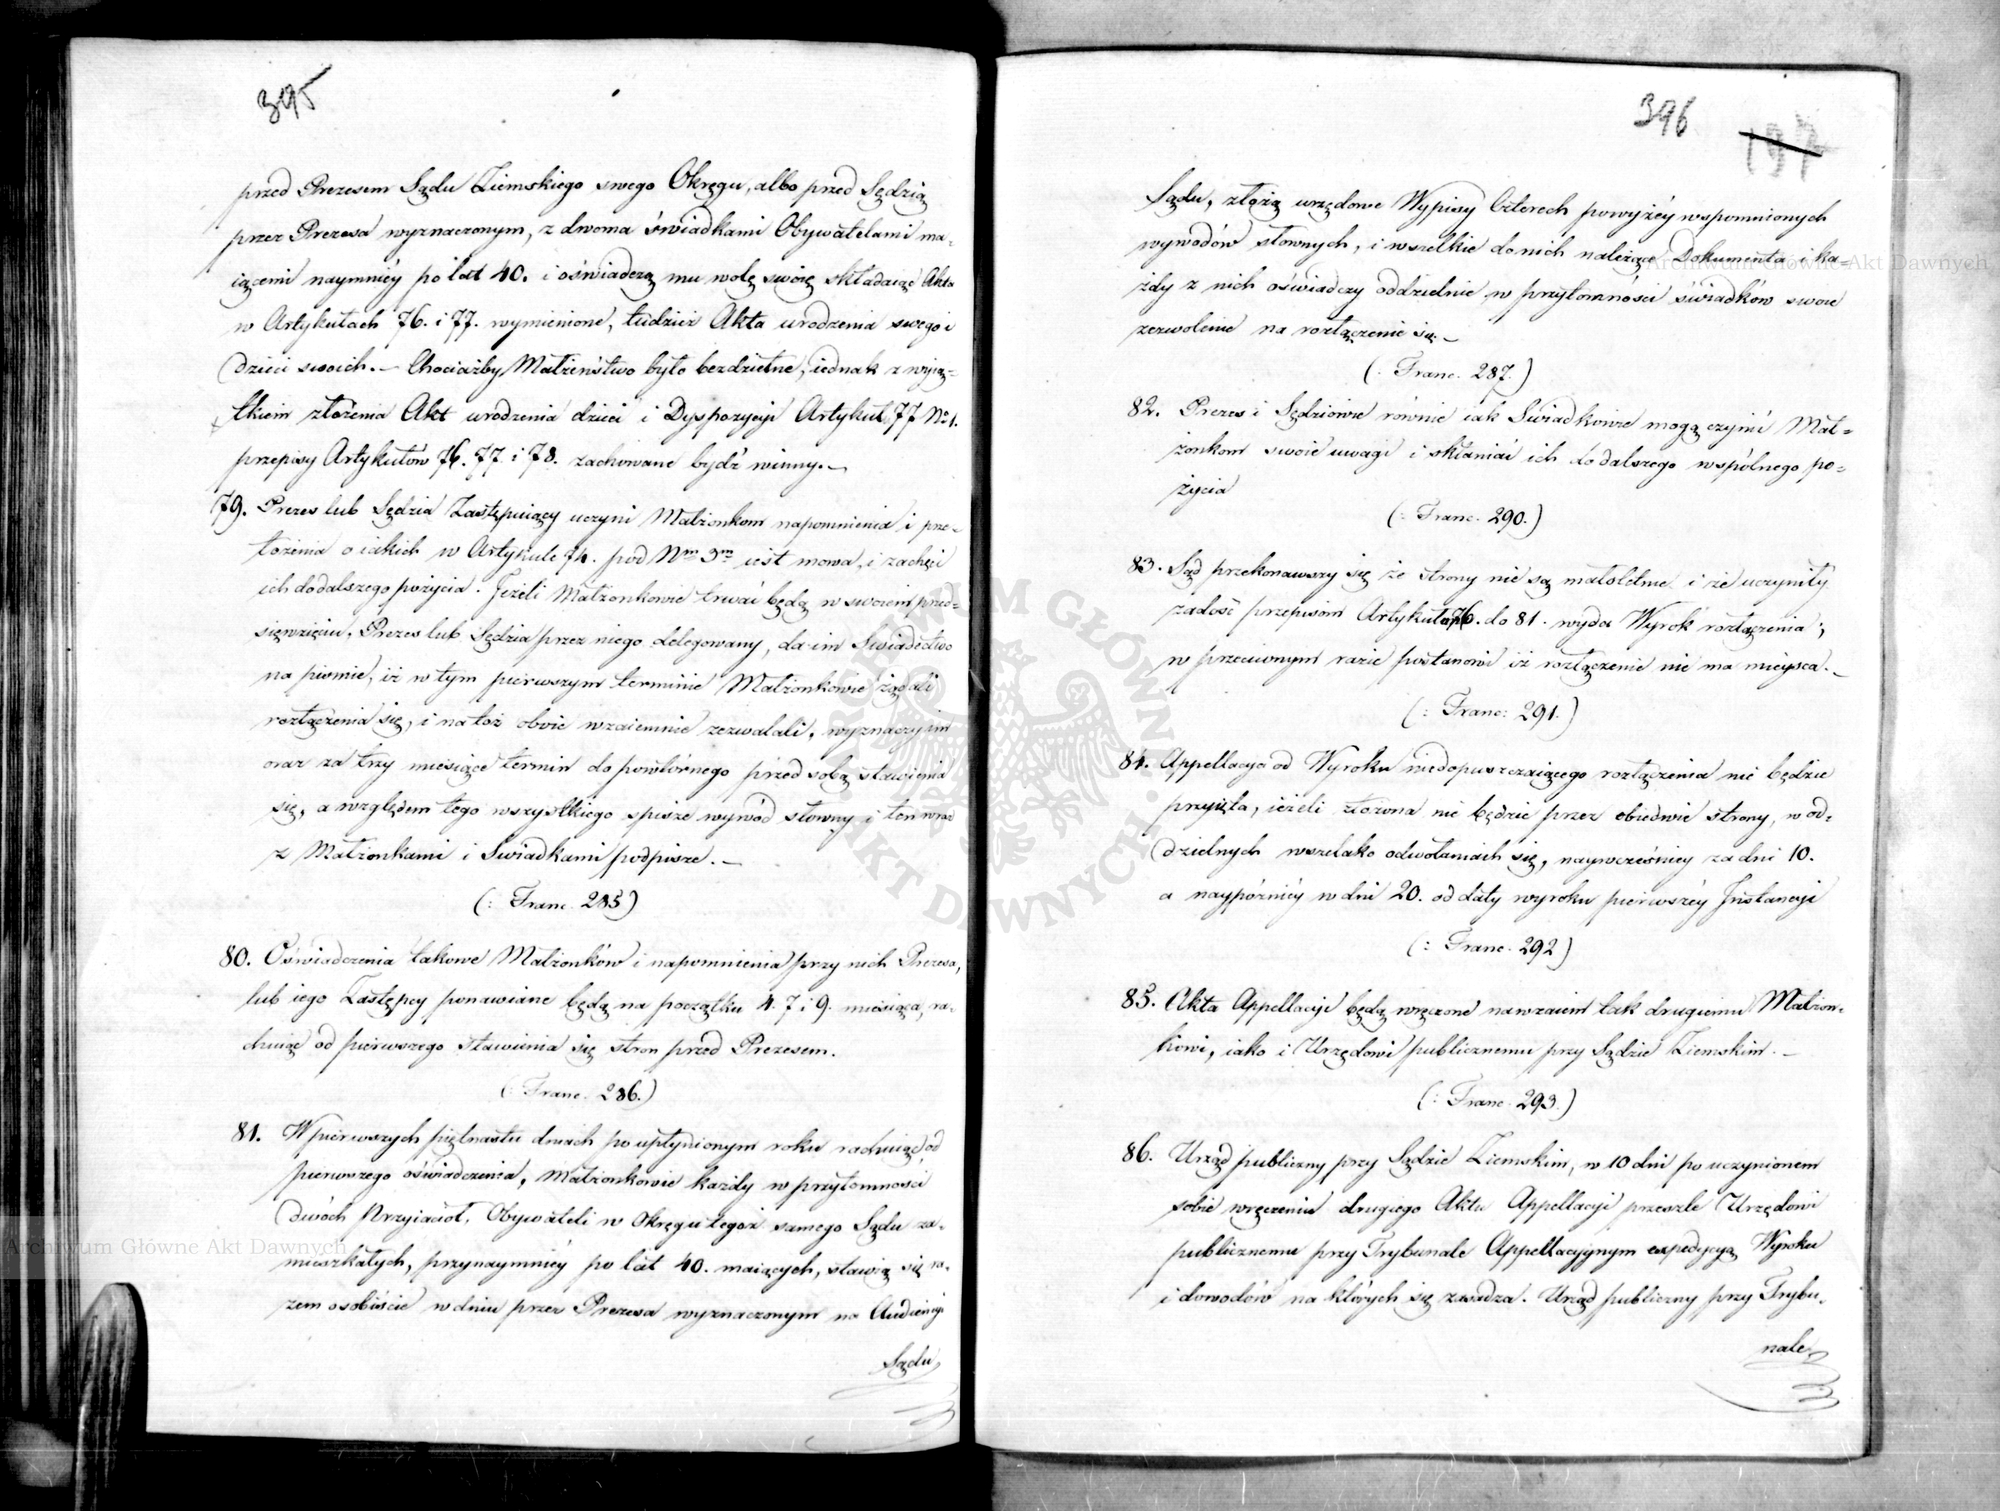 395
przed Prezesem Sądu Ziemskiego swego Okręgu, albo przed Sędzią
przez Prezesa wyznaczonym, z dwoma świadkami Obywatelami ma-
iącemi naymniéy po lat 40. i oświadczą mu wolę swoię składaiąc Akta
w Artykułach 76. i 77. wymienione, tudzież Akta urodzenia swego i
dzieci swoich. — Chociażby Małżeństwo było bezdzietne, iednak z wyią-
tkiem złożenia Akt urodzenia dzieci i Dyspozycyi Artykuł 77 No 1.
przepisy Artykułów 76. 77. i 78. zachowane bydź winny. —
79. Prezes lub Sędzia Zastępuiący uczyni Małżonkom napomnienia i prze-
łożenia o iakich w Artykule 74. pod Nm 3m iest mowa, i zachęci
ich do dalszego pożycia. Jeżeli Małżonkowie trwać będą w swoiem przed-
sięwzięciu, Prezes lub Sędzia przez niego delegowany, da im Swiadectwo
na piśmie, iż w tym pierwszym terminie Małżonkowie żądali
rozłączenia się, i na toż obvie wzaiemnie zezwalali, wyznaczy im
oraz za trzy miesiące termin do powtórnego przed sobą stawienia
się, a względem tego wszystkiego spisze wywód słowny i ten wraz
z Małżonkami i Swiadkami podpisze. —
(: Franc. 285)
80. Oświadczenia takowe Małżonków i napomnienia przy nich Prezesa,
lub iego Zastępcy ponawiane będą na początku 4. 7 i 9. miesiąca, ra-
chuiąc od pierwszego stawienia się stron przed Prezesem.
(: Franc. 286.)
81. W pierwszych piętnastu dniach po upłynionym roku rachuiąc od
pierwszego oświadczenia, Małżonkowie każdy w przytomności
dwóch Przyiaciół, Obywateli w Okręgu tegoż samego Sądu za-
mieszkałych, przynaymniéy po lat 40. maiących, stawią się ra-
zem osobiście w dniu przez Prezesa wyznaczonym na Audiencyi
Sądu,
396
197
Sądu, złożą urzędowe Wypisy Czterech powyżéy wspomnionych
wywodów słownych, i wszelkie do nich należące Dokumenta i ka-
żdy z nich oświadczy oddzielnie w przytomności świadków swoie
zezwolenie na rozłączenie się. —
(: Franc. 287.)
82. Prezes i Sędziowie równie iak Swiadkowie mogą czynić Mał-
żonkom swoie uwagi i skłaniać ich do dalszego wspólnego po-
życia
(: Franc. 290.)
83. Sąd przekonawszy się że strony nie są małoletnie i że uczyniły
zadość przepisom Artykułu 76. do 81. wyda Wyrok rozłączenia;
w przeciwnym razie postanowi iż rozłączenie nie ma mieysca. —
(: Franc: 291.)
84. Appellacya od Wyroku niedopuszczaiącego rozłączenia nie będzie
przyięta, ieżeli złożona nie będzie przez obiedwie strony, w od-
dzielnych wszelako odwołaniach się, naywcześniey za dni 10.
a naypóźniéy w dni 20. od daty wyroku pierwszéy Instancyi
(: Franc. 292)
85. Akta Appellacyi będą wręczone nawzaiem tak drugiemu Małżon-
kowi, iako i Urzędowi publicznemu przy Sądzie Ziemskim. —
(: Franc. 293.)
86. Urząd publiczny przy Sądzie Ziemskim, w 10 dni po uczynionem
sobie wręczeniu drugiego Aktu Appellacyi prześzle Urzędowi
publicznemu przy Trybunale Appellacyynym expedycyą Wyroku
i dowodów na których się zasadza. Urząd publiczny przy Trybu-
nale
Archiwum Główne Akt Dawnych
Archiwum Główne Akt Dawnych
ARCHIWUM GŁÓWNE AKT DAWNYCH